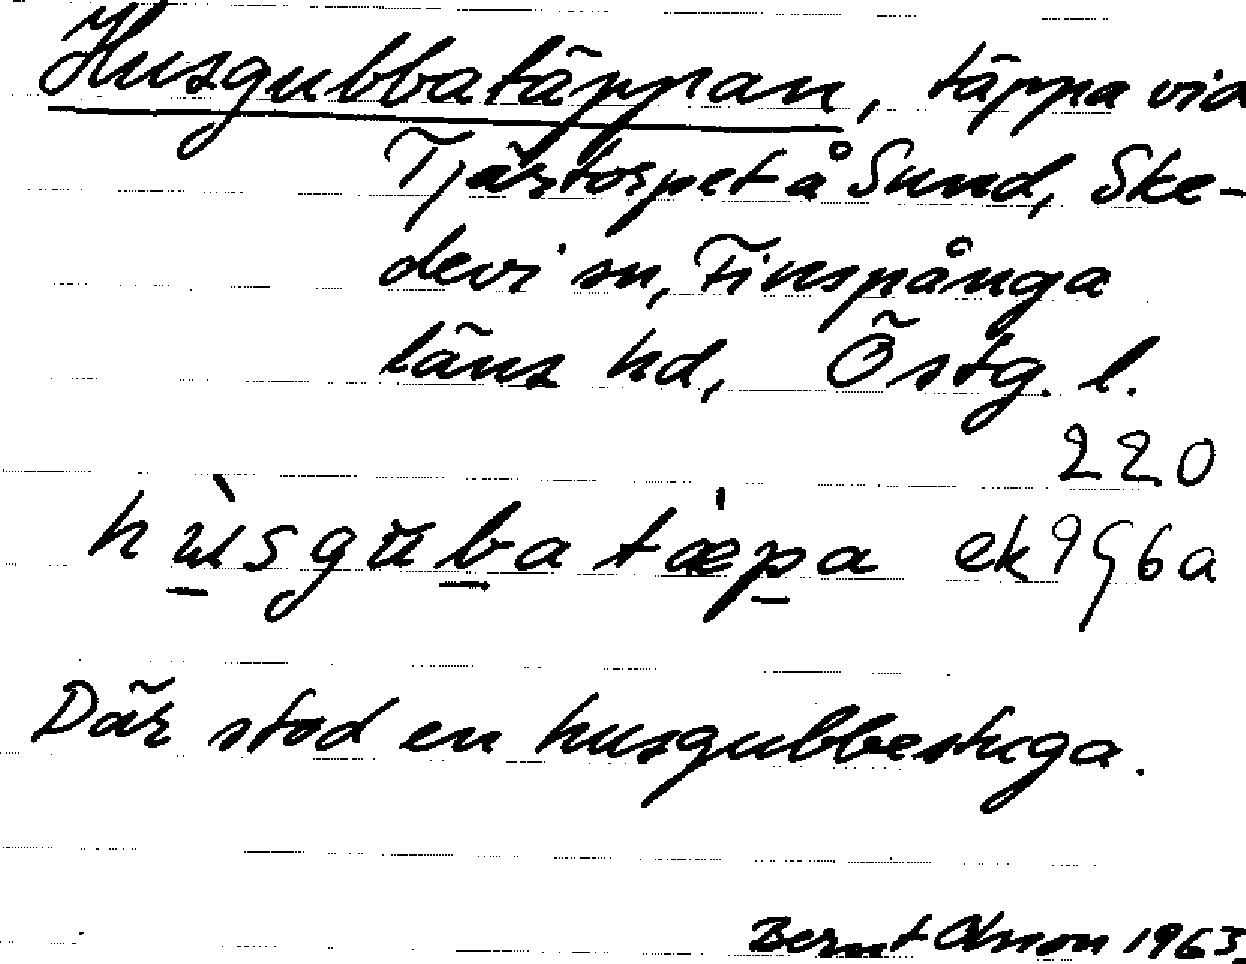 Husgubbatäppan, täppa vid
Tjärtorpet å Sund, Ske-
devi sn, Finspånga
läns hd, Östg. l.
220
ek 996a
Där stod en husgubbestuga.
Bernt Olsson 1963.